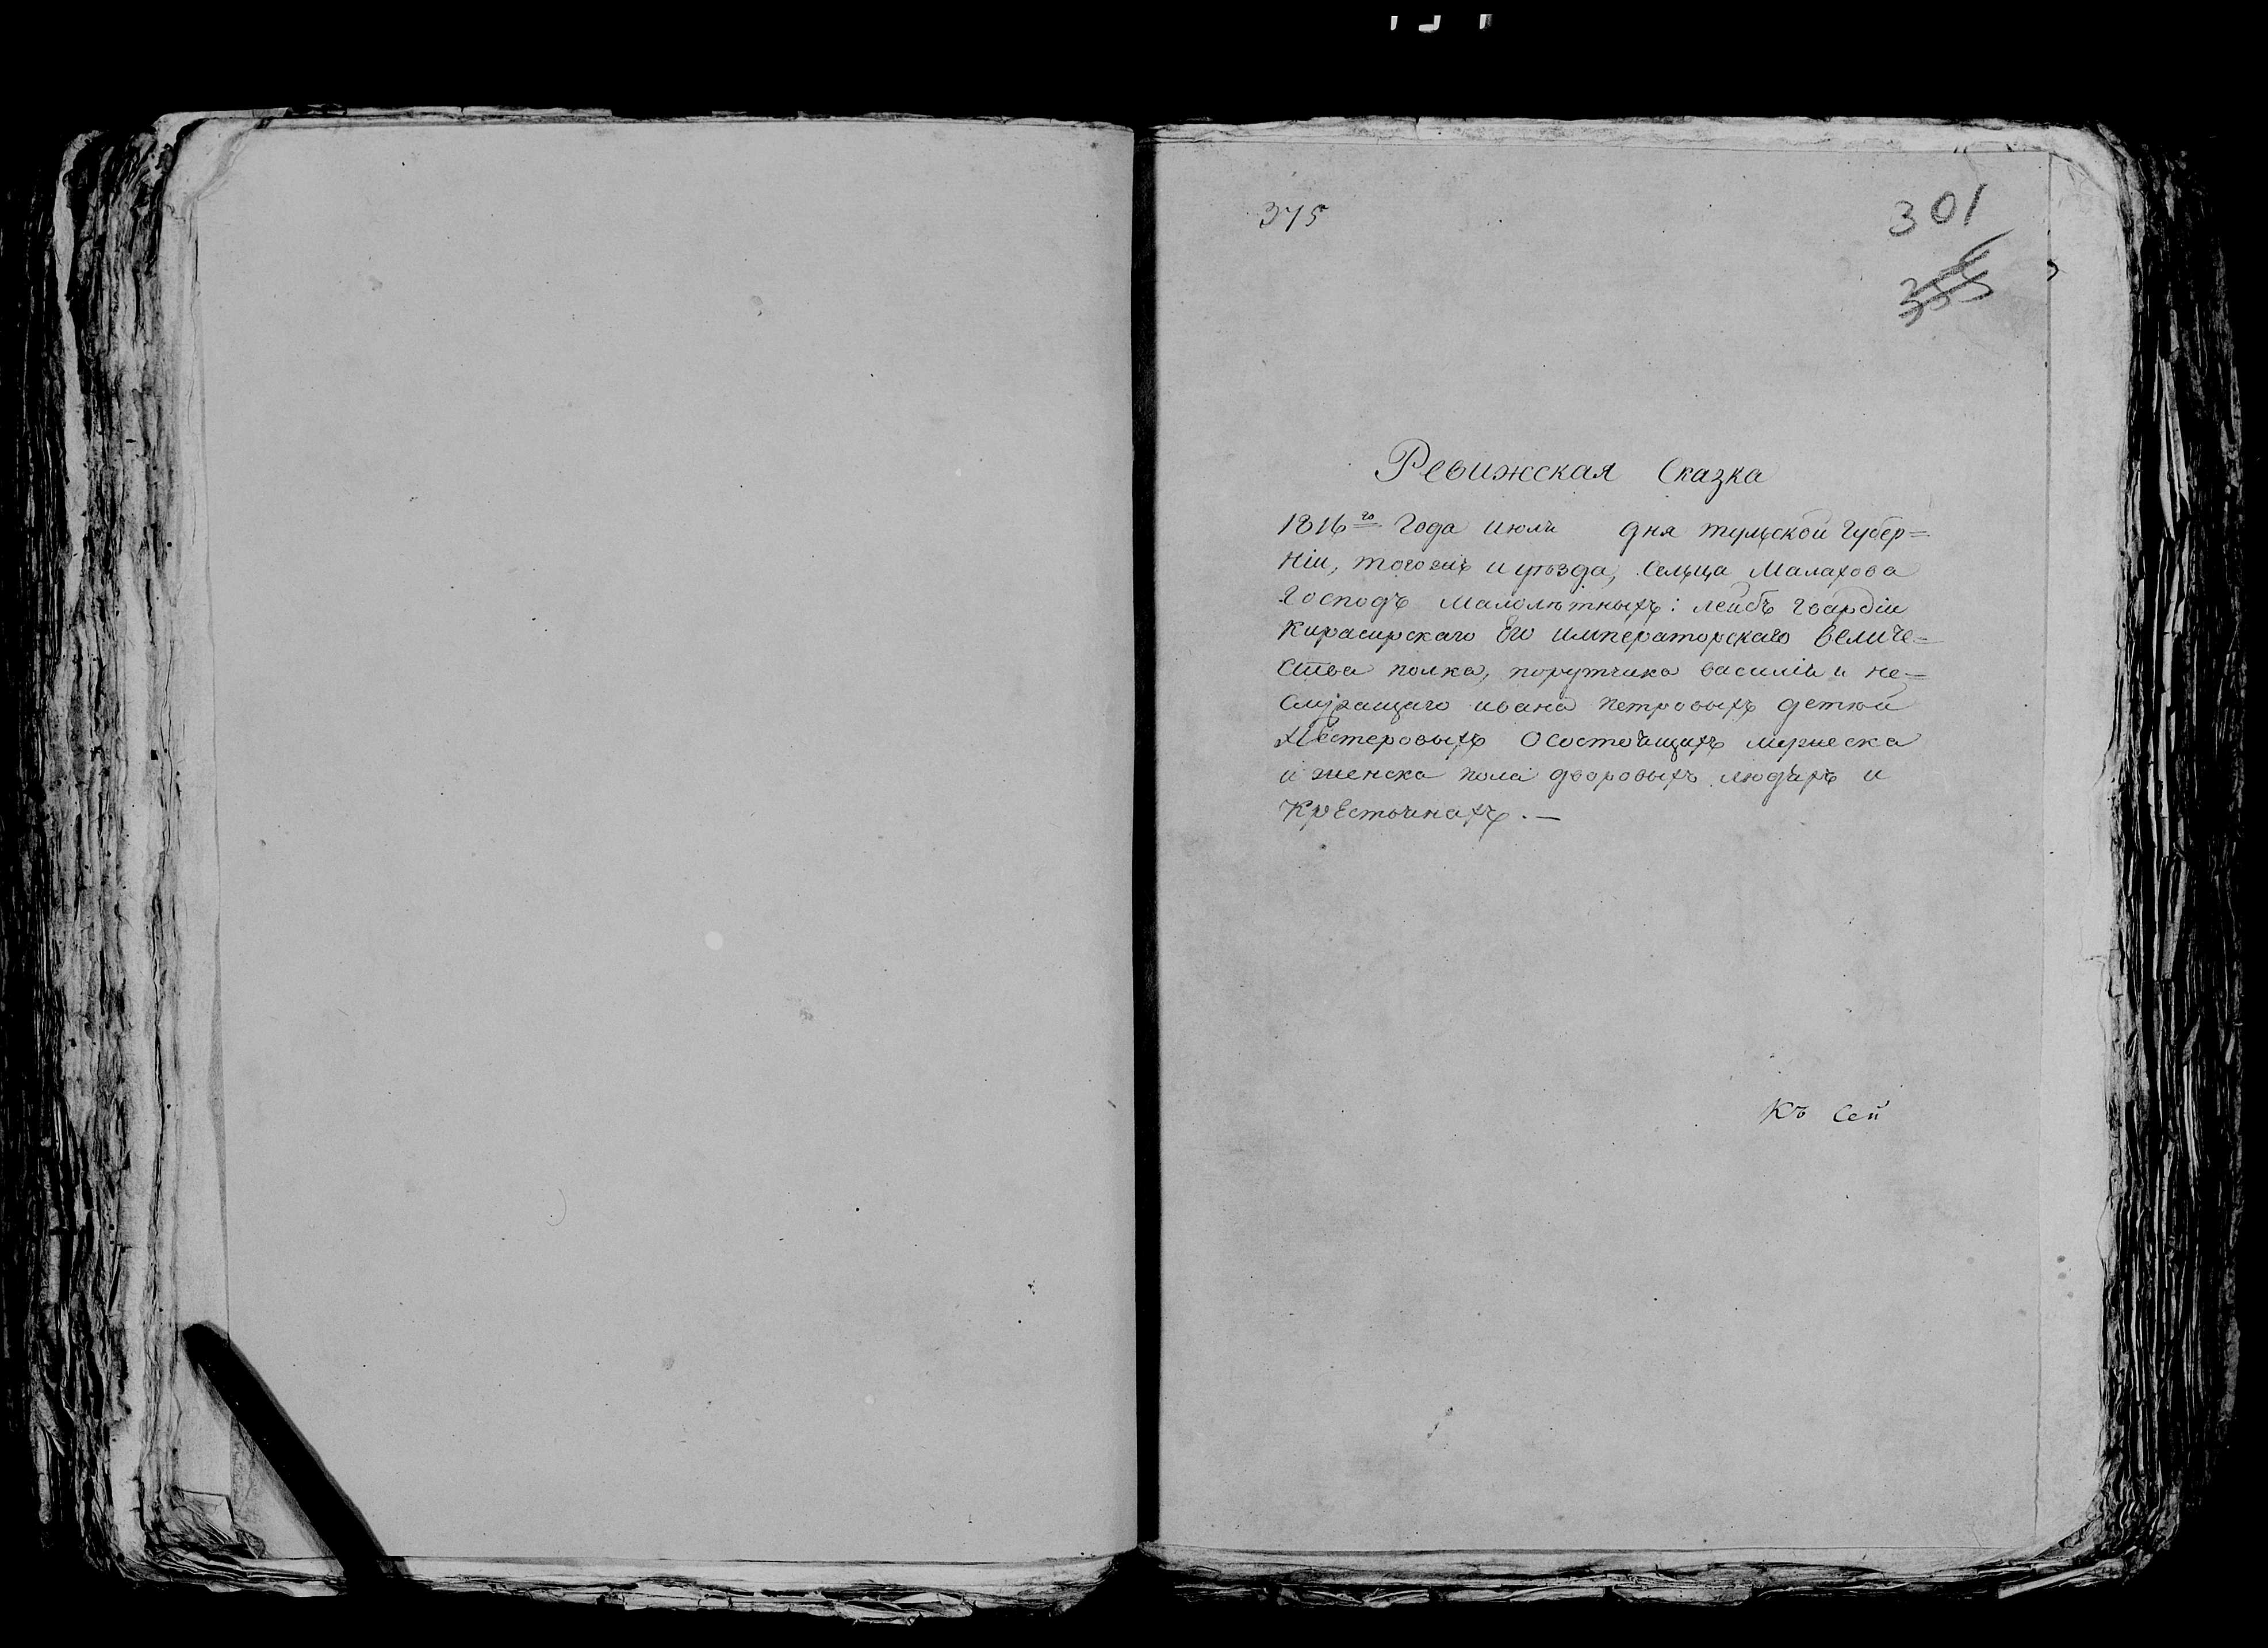 375
301
355
Ревижская Сказка
1816го Года Июля дня тульской Губер=
ніи, тогожъ и уѣзда, Сельца Малахова
Господъ Малолѣтныхъ: Лейбъ Гвардіи
Кирасирскаго Его Императорскаго Величе=
Ства полка, порутчика василія и не=
Служащаго ивана Петровыхъ детей
Нестеровыхъ Осостоящихъ мужеска
и женска пола дворовыхъ людяхъ и
Крестьянахъ.—
Къ Сей